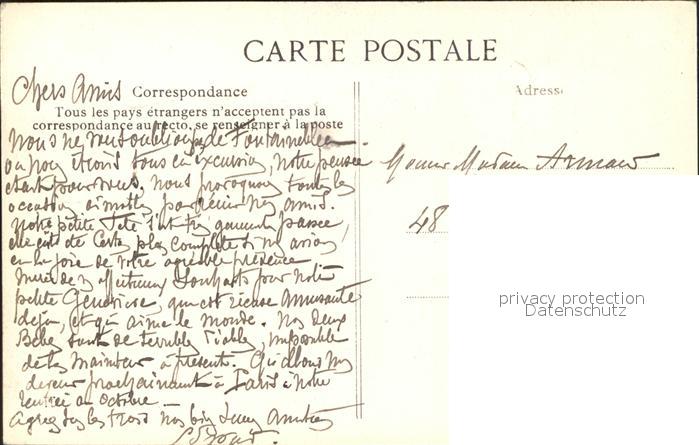 CARTE POSTALE
Chers Amis Correspondance
Adresse
Tous les pays étrangers n'acceptent pas la
correspondance au recto, se renseigner à la poste
Nous ne vous oublions pas de Fontainebleau
ou nous étions tous en excursion, notre pensée
était pour vous, nous provoquons toutes les
occasions aimables pour réunir nos amis.
Notre petite fête s'est très gaiement passée,
elle eût été certes plus complète si nous avions
eu la joie de votre agréable présence.
Merci de vos affectueux souhaits pour notre
petite Geneviève, qui est rieuse amusante
déjà, et qui aime le monde. Nos deux
Bébés sont de terribles diables, impossible
de les maintenir à présent. Qui allons nous
prochainement à Paris à notre
rentrée en octobre —
Agréez tous les trois nos bien amitiés
Monsieur Madame Armand
48
privacy protection
Datenschutz